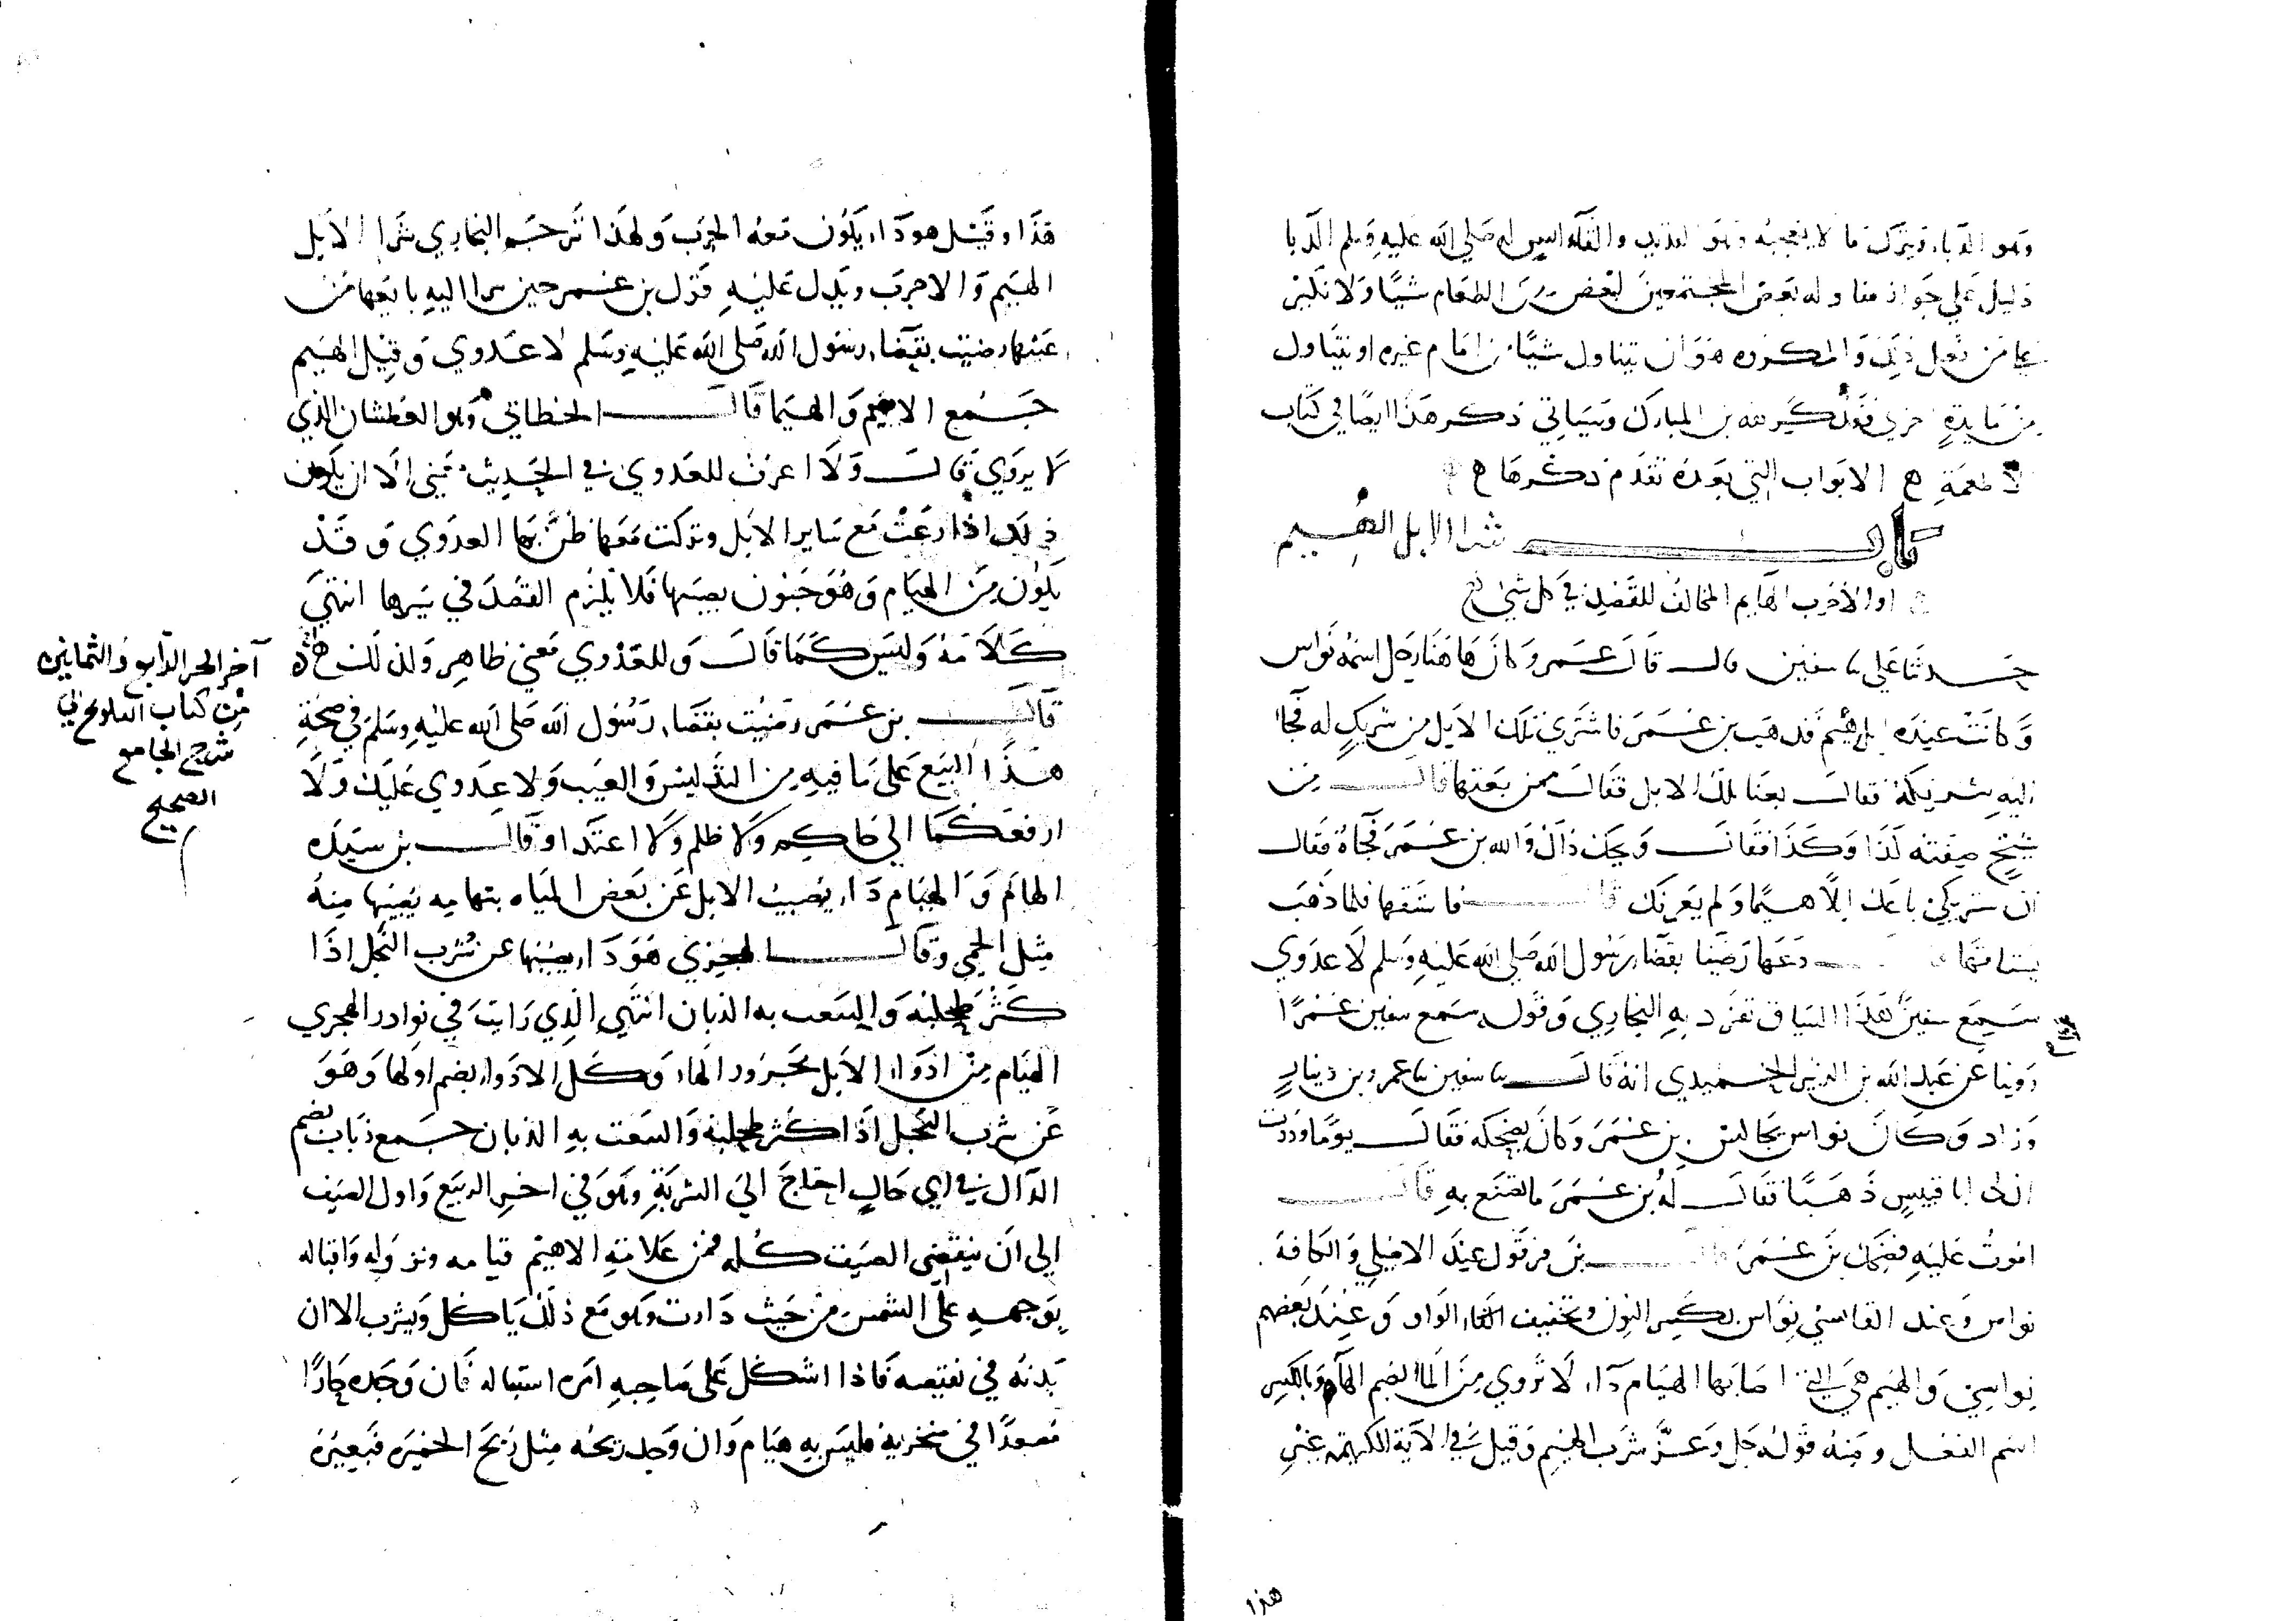 وهو الدبا، ويترك ما لا يعجبه وهو القديد والقاه انس له صلي الله عليه وسلم الدبا
دليل علي جواز مناوله بعض المجتمعين لبعض من الطعام شيًا ولا نكير
علي من فعل ذلك والمكروه هو ان يتناول شيًا من امام غيره او يتناول
من مايدةٍ اخري فقد كرهه بن المبارك وسياتي ذكر هذا ايضًا في كتاب
الاطعمة ح الابواب التي بعده تقدم ذكرها ح
باب شرا الابل الهيم
او الاجرب الهايم المخالف للقصد في كل شي
حدثنا علي سفين قال قال عمر وكان هاهنا رجل اسمه نواس
وكانت عنده ابل هيم فذهب بن عمر فاشتري تلك الابل من شريك له فجا
اليه شريكه فقال بعنا تلك الابل فقال ممن بعتها قال من
شيخ صفته كذا وكذا فقال ويحك ذاك والله بن عمر فجاه فقال
ان شريكي باعك ابلًا هيمًا ولم يعرفك قال فاستقها فلما ذهب
يستاقها قال دعها رضينا بقضا رسول الله صلي الله عليه وسلم لا عدوي
سمع سفين هذا السياق تفرد به البخاري وقوله سمع سفين عمرًا
روينا عن عبد الله بن الزبير الحميدي انه قال سفين عمرو بن دينار
وزاد وكان نواس يجالس بن عمر وكان يضحكه فقال يومًا وددت
ان لي ابا قبيسٍ ذهبًا فقال له بن عمر ما تصنع به قال
اموت عليه فضحك بن عمر قال بن قرقول عند الاصيلي والكافة
نواس وعند القابسي نِواس بكسر النون وتخفيف الواو وعند بعضهم
نواسي والهيم هي التي اصابها الهيام دا، لا تروي من الما بضم الها وبالكسر
اسم الفعل ومنه قوله جل وعزّ شرب الهيم وقيل في الاية الكريمة غير
هذا
هذا وقيل هو دا، يكون معه الجرب ولهذا ترجم البخاري شرا الابل
الهيم والاجرب ويدل عليه قول بن عمر حين تبرا اليه بايعها من
عيبها رضيت بقضا، رسول الله صلى الله عليه وسلم لا عدوي وقيل الهيم
جمع الاهيم والهيما قال الخطابي وهو العطشان الذي
لا يروي قال ولا اعرف للعدوي في الحديث معني الا ان يكون
ذلك اذا رعت مع ساير الابل وتركت معها ظن بها العدوي وقد
يكون من الهيام وهو جنون يصيبها فلا يلزم القصد في سيرها انتهي
كلامه وليس كما قال وللعدوي معني ظاهر ولذلك
قال بن عمر رضيت بقضا، رسول الله صلى الله عليه وسلم في صحة
هذا البيع على ما فيه من التدليس والعيب ولا عدوي عليك ولا
ارفعكما الي حاكم ولا ظلم ولا اعتدا وقال بن سيده
الهايم والهيام دا، يصيب الابل عن بعض المياه بتهامه يصيبها منه
مثل الحمي وقال الهجري هو دا، يصيبها عن شرب النجل اذا
كثر طحلبه واكتنف به الذبان انتهي الذي رايت في نوادر الهجري
الهيام من ادواء الابل مجرور الها، وكل الادوا، بضم اولها وهو
عن شرب النجل اذا كثر طحلبه واكتنفت به الذبان جمع ذباب بضم
الذال في اي حالٍ احتاج الي الشربة وهو في اخر الربيع واول الصيف
الي ان ينقضي الصيف كله فمن علامة الاهيم قيامه ونزوله واقباله
بوجهه على الشمس من حيث دارت وهو مع ذلك ياكل ويشرب الا ان
بدنه في نقيصه فاذا اشكل على صاحبه امره استباله فان وجده
في منخريه فليس به هيام وان وجد ريحه مثل ريح الخميرة فبعيره
آخر الجز الرابع والثمانين
من كتاب التلويح الي
شرح الجامع
الصحيح